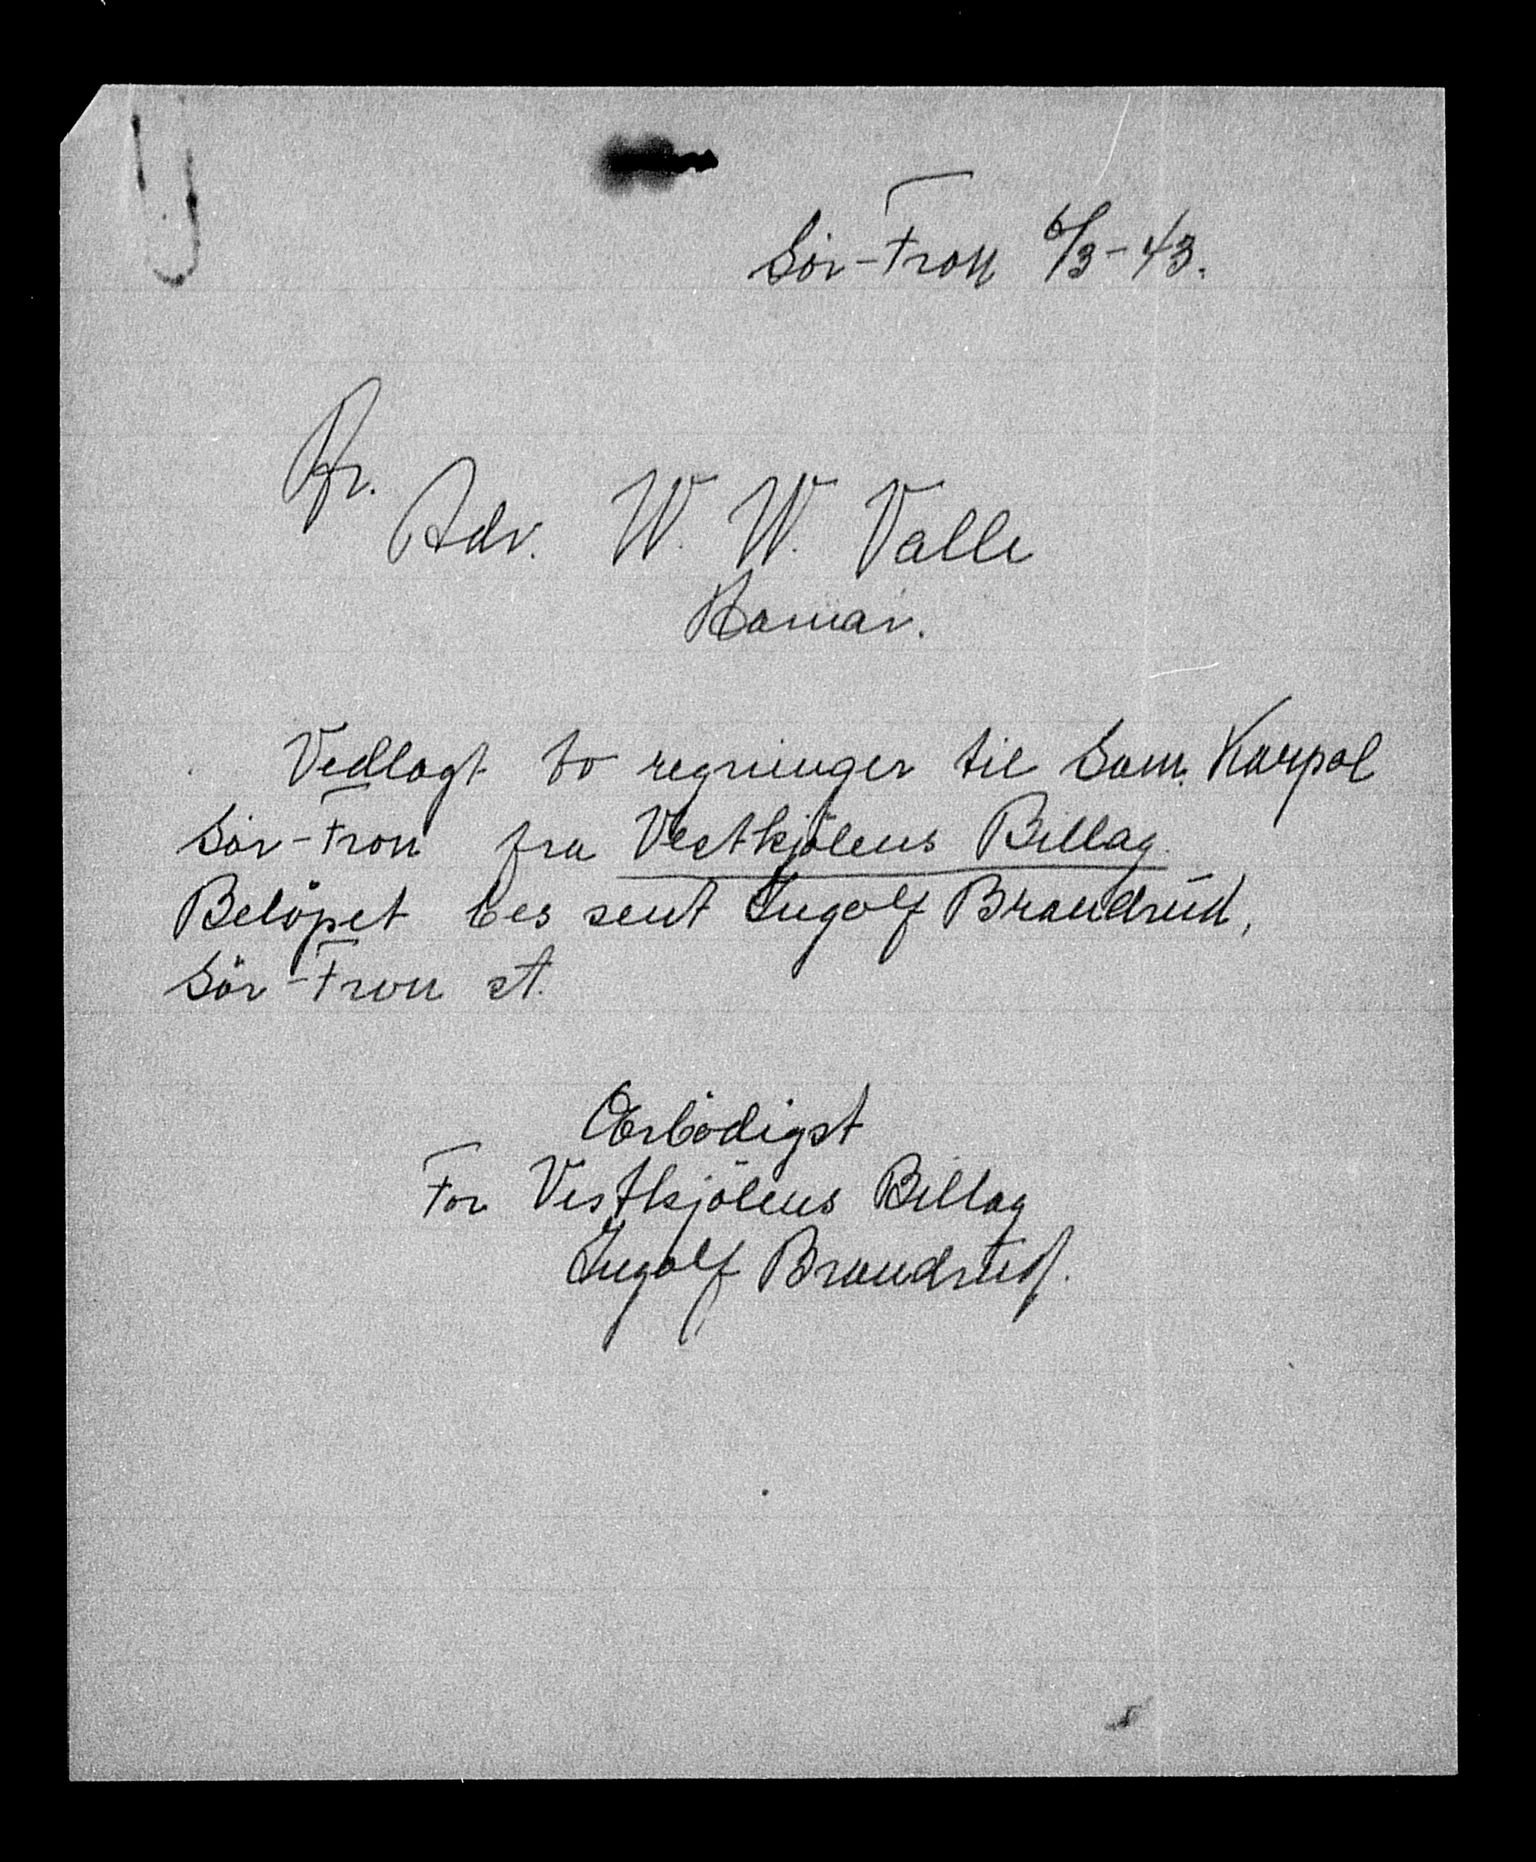 Sör-Fron 6/3-43.
Hr.
Adv. W. W. Valle
Hamar.
Vedlagt to regninger til Sam. Karpol
Sör-Fron fra Vestkjölens Billag.
Belöpet bes sent Ingolf Brandrud,
Sör-Fron st.
Ærbödigst
For Vestkjölens Billag
Ingolf Brandrud.